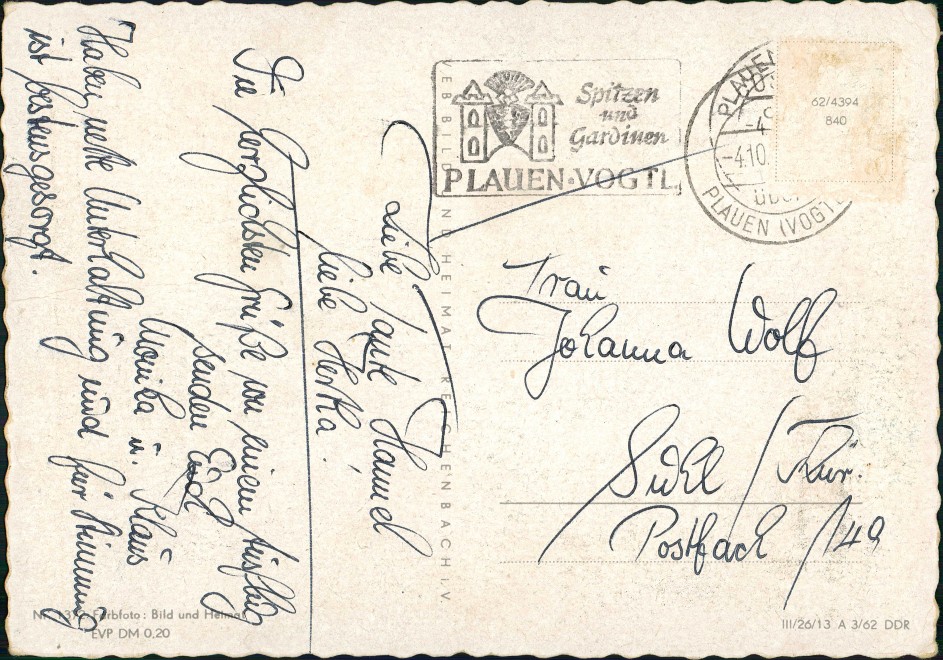 Liebe Tante Hannel
liebe Hertha!
Die herzlichsten Grüße von einem Ausflug
senden Euch
Monika u. Klaus
Haben nette Unterhaltung und für Stimmung
ist bestens gesorgt.
Spitzen
und
Gardinen
PLAUEN·VOGTL.
PLAUEN
-4.10.
PLAUEN (VOGTL
62/4394
840
Frau
Johanna Wolf
Suhl / Thür.
Postfach /149
BILD UND HEIMAT REICHENBACH i.V.
Farbfoto: Bild und Heimat
EVP DM 0,20
III/26/13 A 3/62 DDR